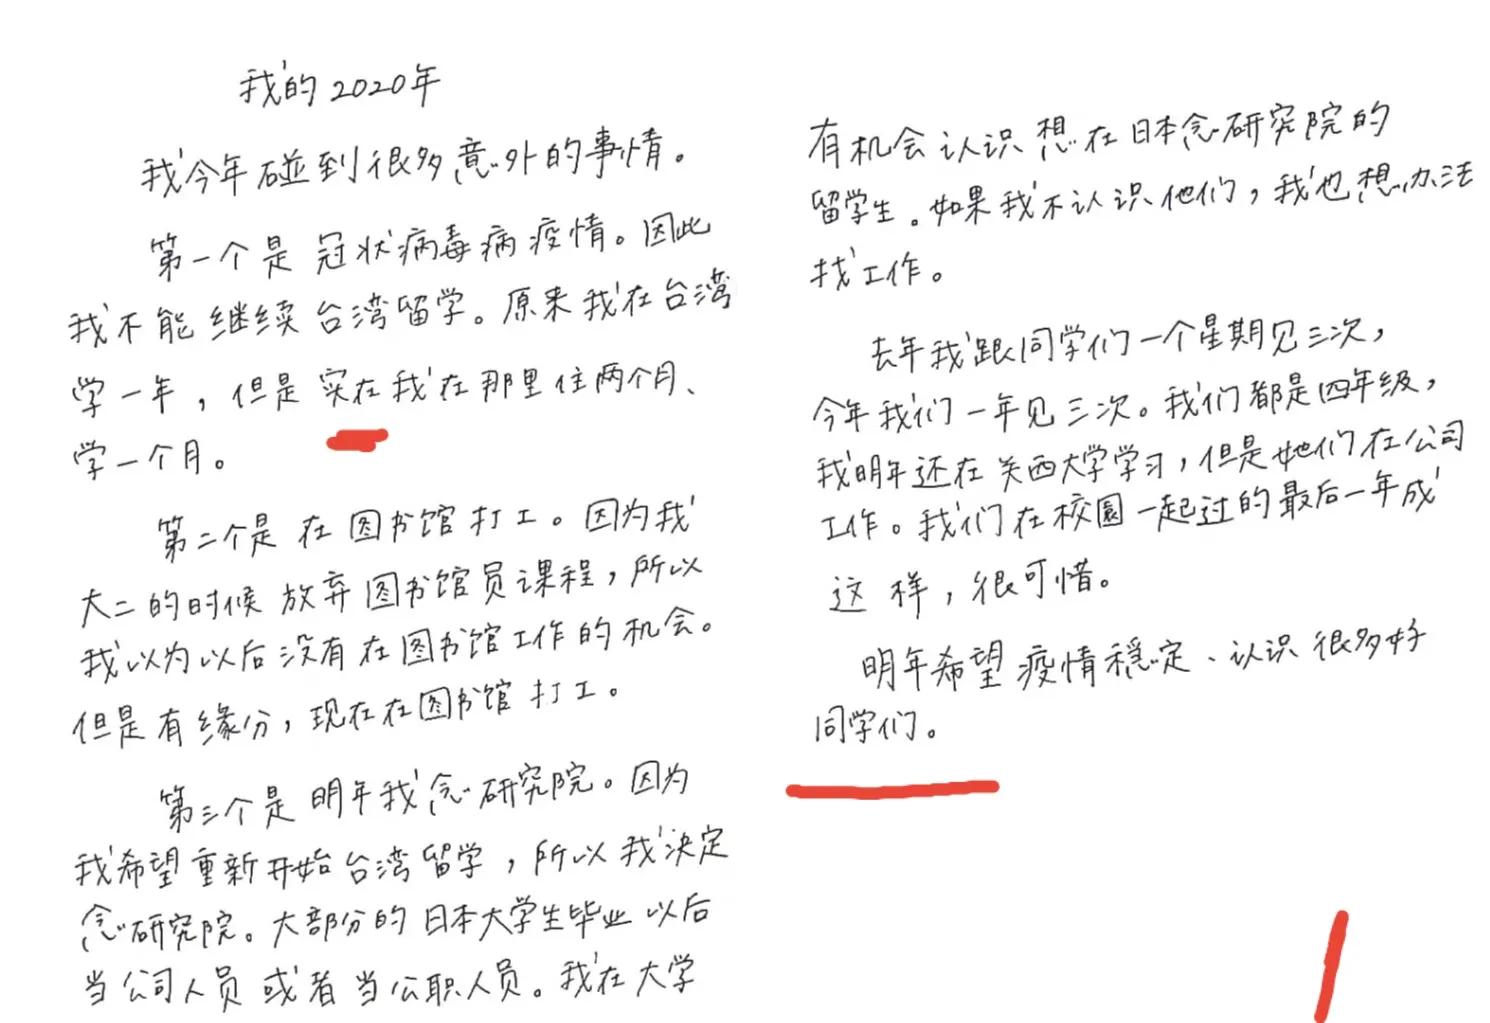 我的2020年
我今年碰到很多意外的事情。
第一个是冠状病毒病疫情。因此
我不能继续台湾留学。原来我在台湾
学一年，但是实在我在那里住两个月、
学一个月。
第二个是在图书馆打工。因为我
大二的时候放弃图书馆员课程，所以
我以为以后没有在图书馆工作的机会。
但是有缘分，现在在图书馆打工。
第三个是明年我念研究院。因为
我希望重新开始台湾留学，所以我决定
念研究院。大部分的日本大学生毕业以后
当公司人员或者当公职人员。我在大学
有机会认识想在日本念研究院的
留学生。如果我不认识他们，我也想办法
找工作。
去年我跟同学们一个星期见三次，
今年我们一年见三次。我们都是四年级，
我明年还在关西大学学习，但是她们在公司
工作。我们在校園一起过的最后一年成
这样，很可惜。
明年希望疫情穩定、认识很多好
同学们。